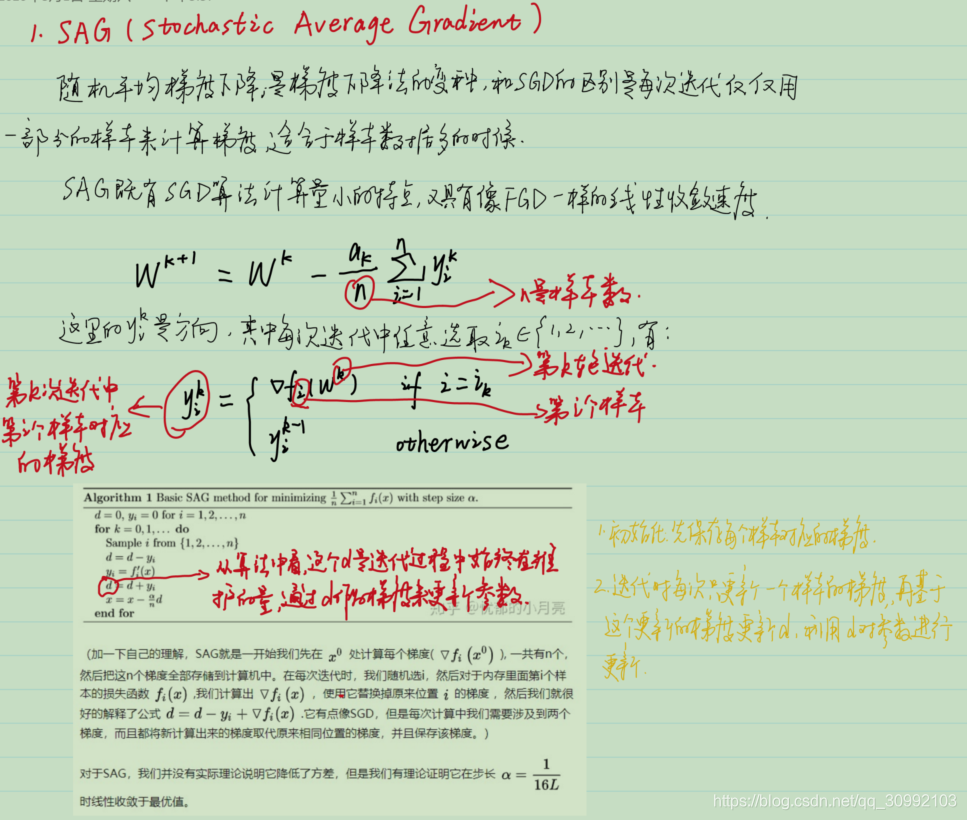 1. SAG (Stochastic Average Gradient)
随机平均梯度下降,是梯度下降法的变种,和SGD的区别是每次迭代仅仅用
一部分的样本来计算梯度,适合于样本数据多的时候.
SAG既有SGD算法计算量小的特点,又具有像FGD一样的线性收敛速度.
W^{k+1} = W^k - \frac{a_k}{n} \sum_{i=1}^{n} y_i^k
n是样本数.
这里的y_i^k是方向,其中每次迭代中任意选取i_k∈{1,2,…},有:
第k轮迭代.
第k次迭代中
第i个样本对应
的梯度
y_i^k = { ∇f_i(W^k) if i=i_k
y_i^{k-1} otherwise
第i个样本
Algorithm 1 Basic SAG method for minimizing \frac{1}{n} \sum_{i=1}^{n} f_i(x) with step size α.
d = 0, y_i = 0 for i = 1, 2, . . . , n
for k = 0, 1, . . . do
Sample i from {1, 2, . . . , n}
d = d − y_i
y_i = f_i'(x)
d = d + y_i
x = x − \frac{α}{n} d
end for
从算法中看,这个d是迭代过程中始终在维
护的量,通过d的梯度来更新参数.
知乎 @忧郁的小月亮
1.初始化:先保存每个样本对应的梯度.
2.迭代时每次只更新一个样本的梯度,再基于
这个更新的梯度更新d,利用d对参数进行
更新.
(加一下自己的理解,SAG就是一开始我们先在 x^0 处计算每个梯度( ∇f_i (x^0) ),一共有n个,
然后把这n个梯度全部存储到计算机中。在每次迭代时,我们随机选i,然后对于内存里面第i个样
本的损失函数 f_i(x) ,我们计算出 ∇f_i (x) ,使用它替换掉原来位置 i 的梯度,然后我们就很
好的解释了公式 d = d − y_i + ∇f_i(x) .它有点像SGD,但是每次计算中我们需要涉及到两个
梯度,而且都将新计算出来的梯度取代原来相同位置的梯度,并且保存该梯度。)
对于SAG,我们并没有实际理论说明它降低了方差,但是我们有理论证明它在步长 α = \frac{1}{16L}
时线性收敛于最优值。
https://blog.csdn.net/qq_30992103